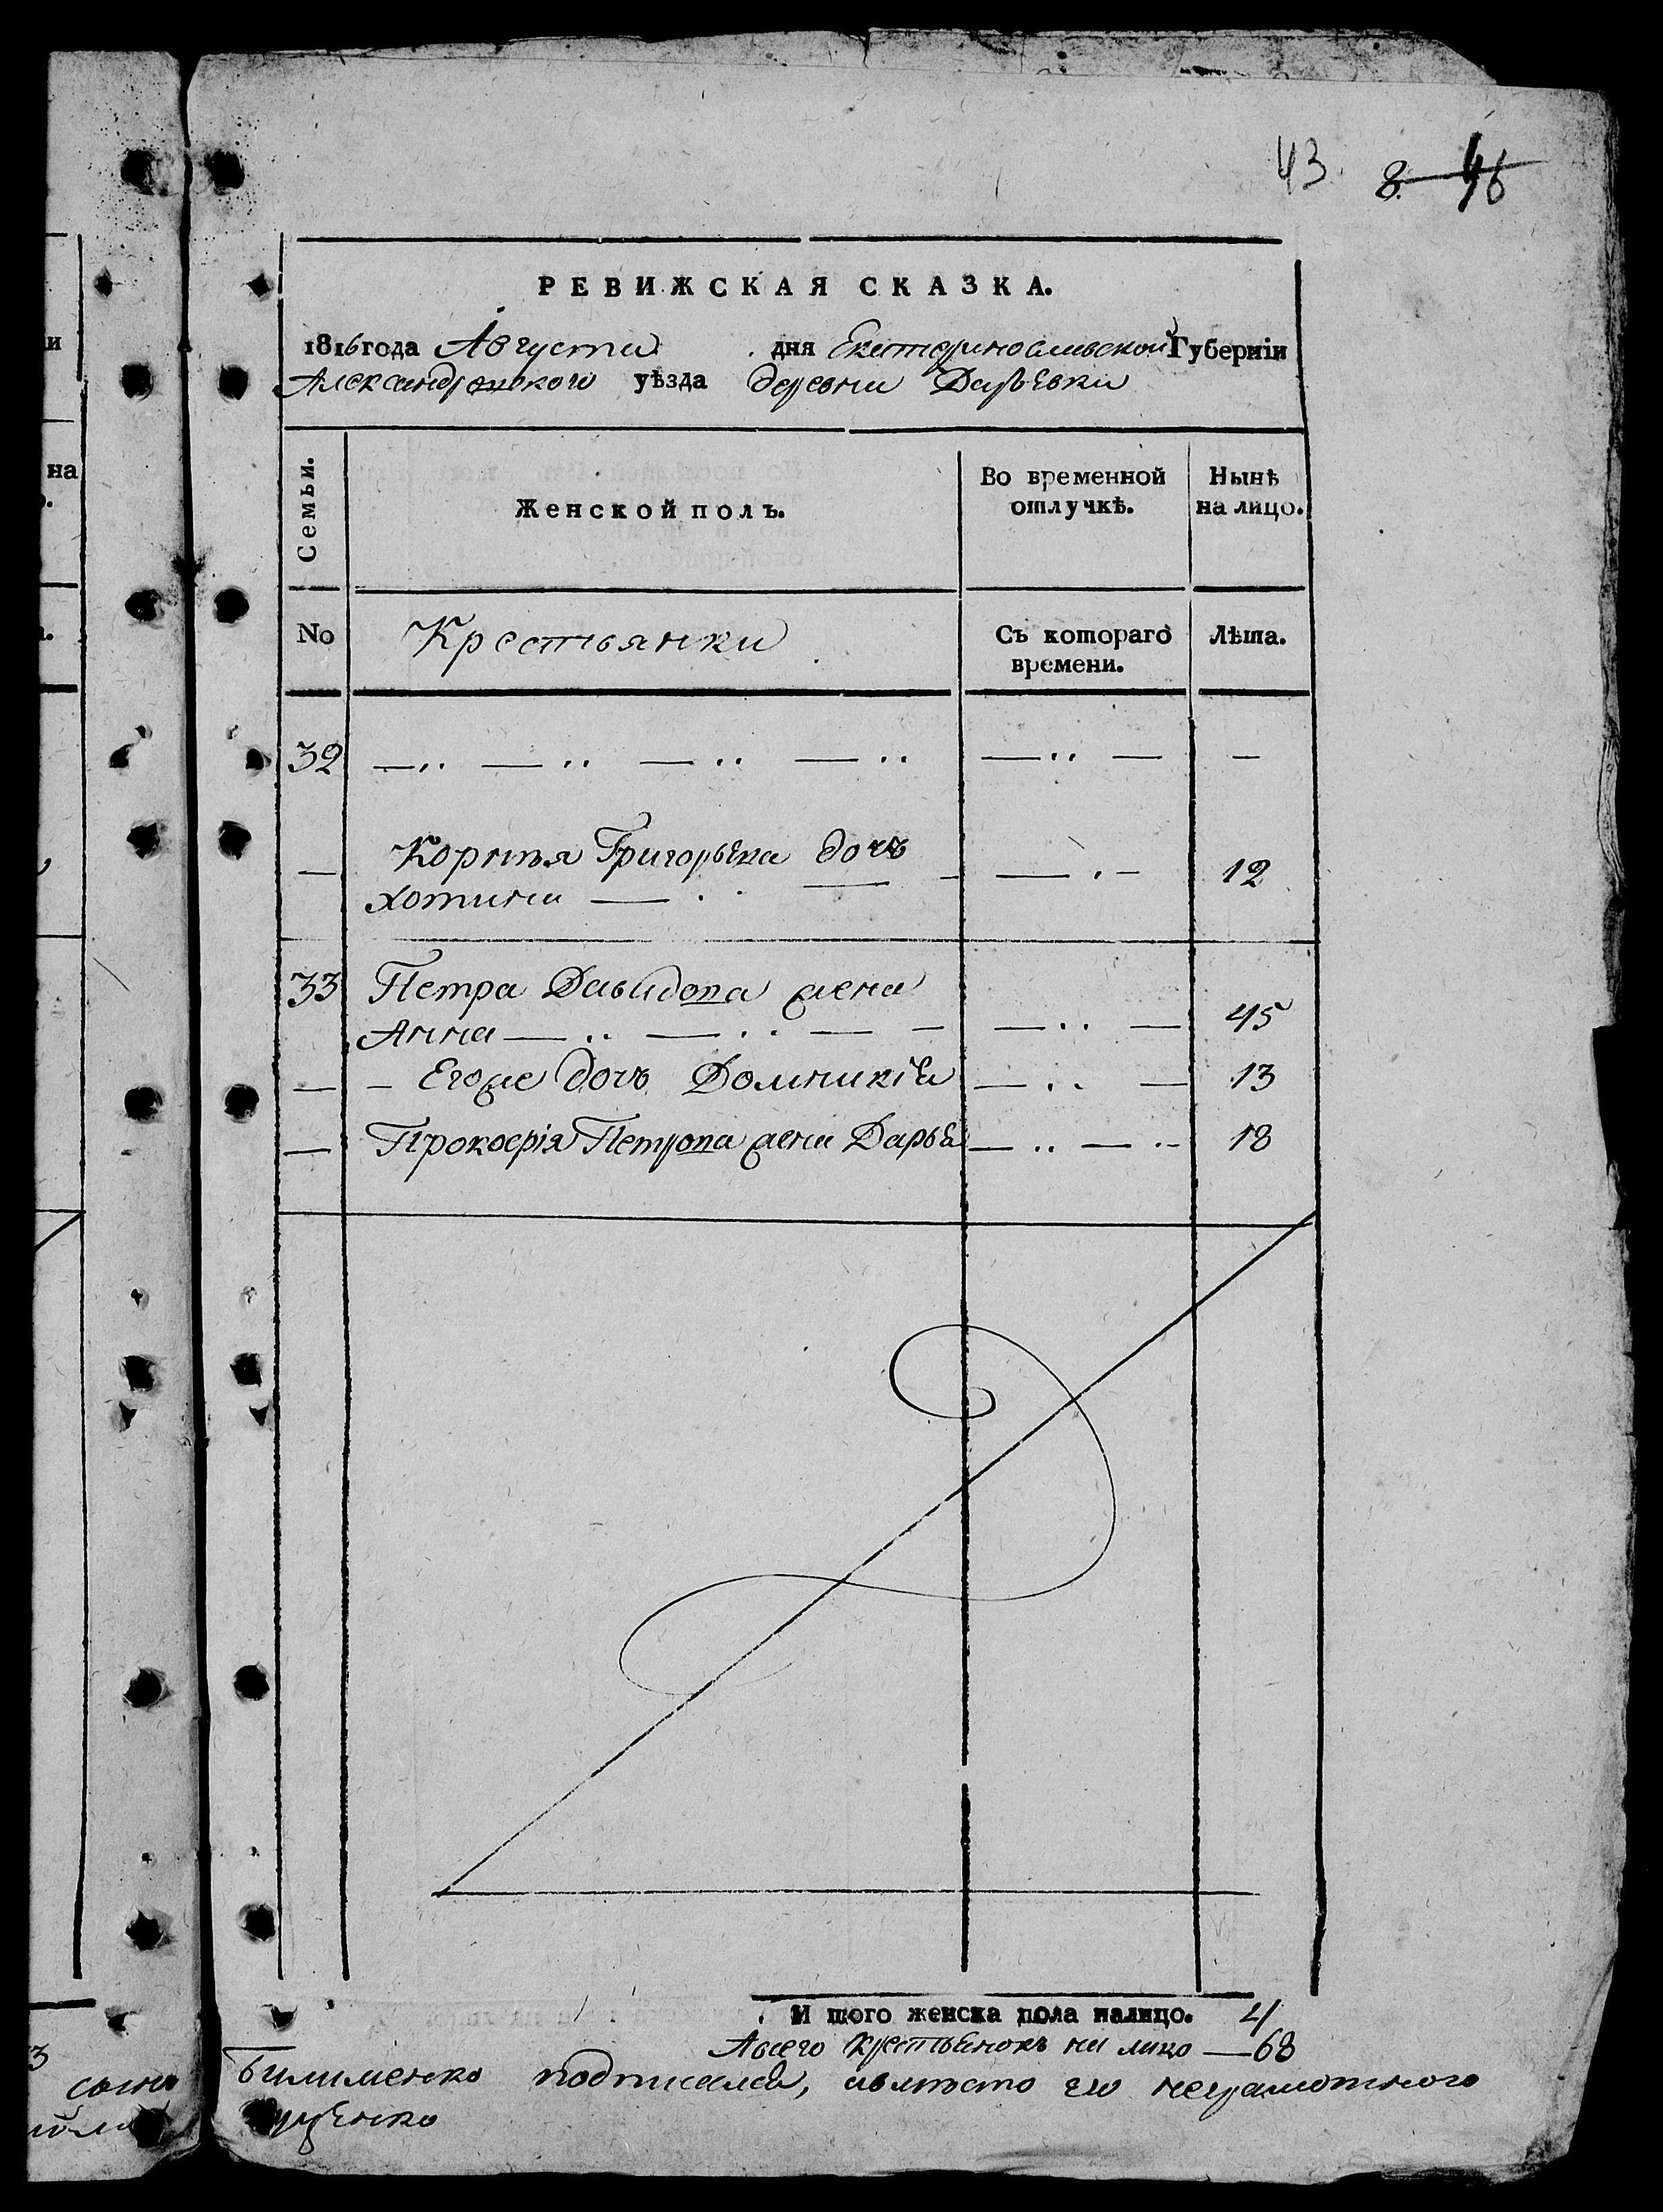 43. 8. 46
РЕВИЖСКАЯ СКАЗКА.
1816 года Августа дня Екатеринославской Губерніи
Александровского уѣзда деревни Дарьевки
Семьи.
Женской полъ.
Во временной отлучкѣ.
Нынѣ на лицо.
No
Крестьянки
Съ котораго времени.
Лѣта.
32 —
— Григорьева дочь
— 12
33 Петра Давидова жена
Анна — 45
— Егоже дочь Домникія — 13
— Прокофія Петрова жена Дарья — 18
И того женска пола налицо. 4
А всего крестьянокъ на лицо — 68
подписался, а вместо его неграмотного
и
на